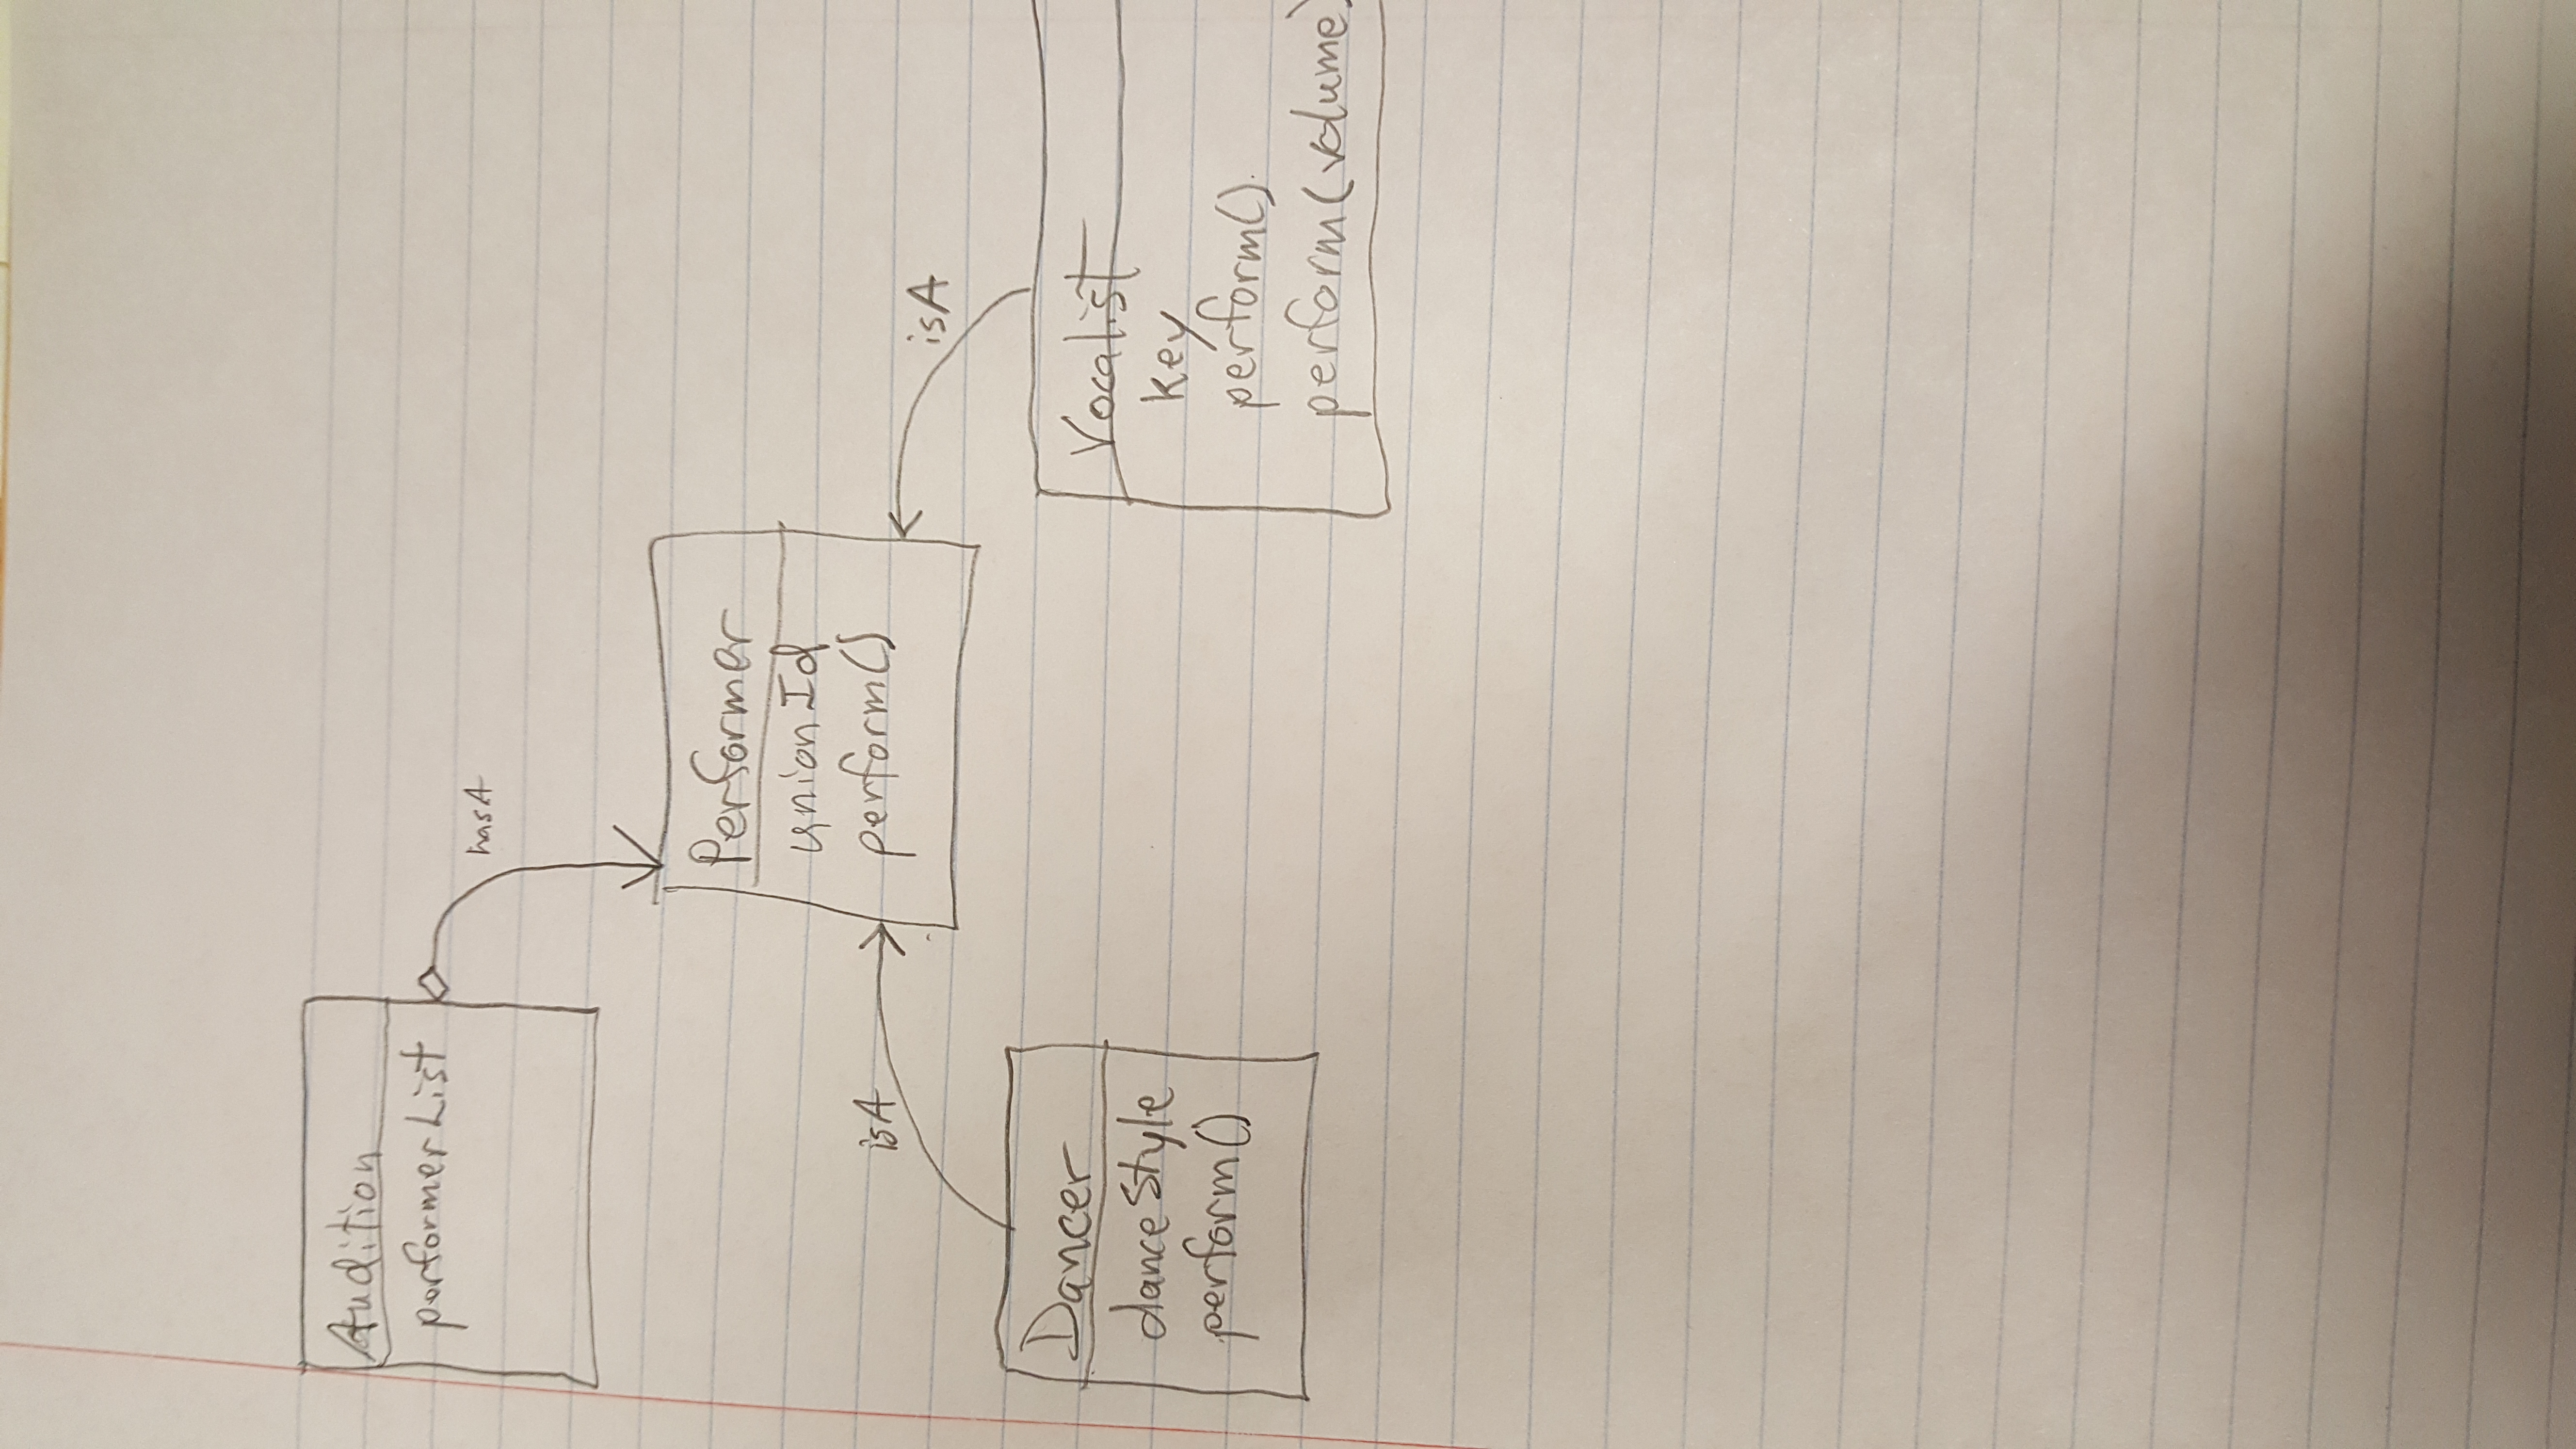 Audition
performerList
hasA
Performer
unionId
perform()
isA
isA
Dancer
danceStyle
perform()
Vocalist
key
perform().
perform(volume)